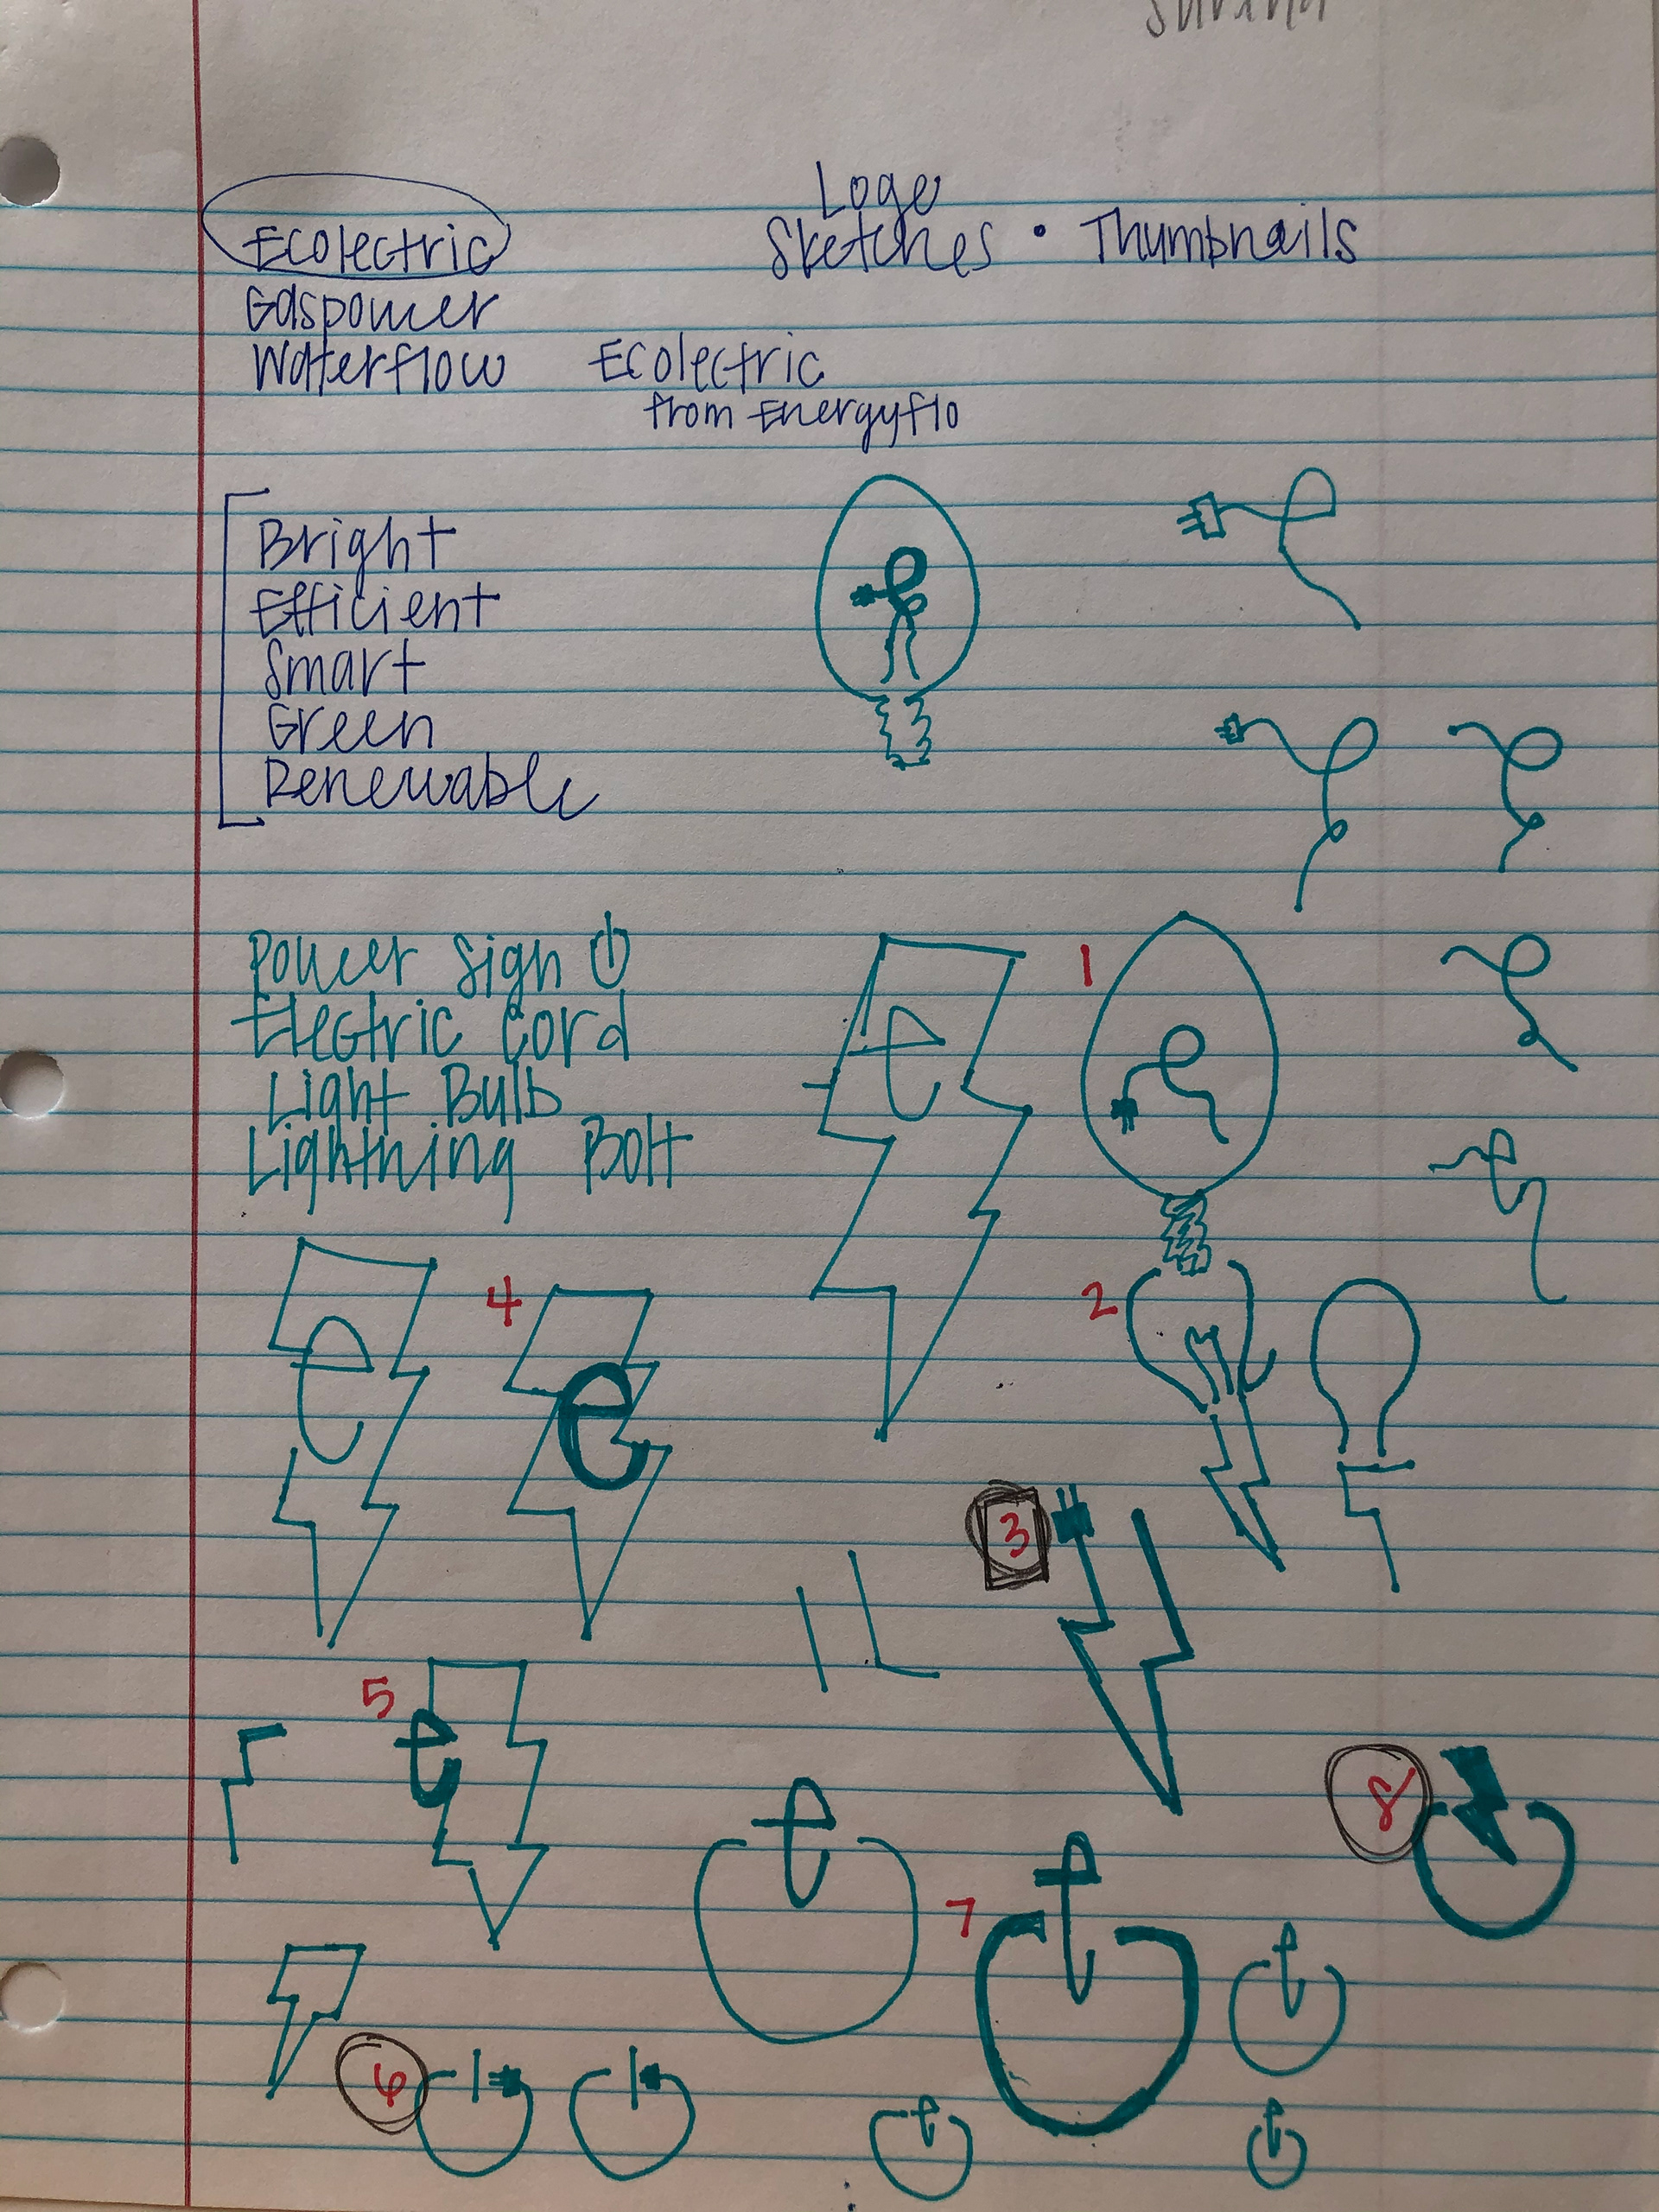 Logo
Sketches • Thumbnails
Ecolectric
Gaspower
Waterflow
Ecolectric
from Energyflo
Bright
Efficient
Smart
Green
Renewable
Power Sign
Electric Cord
Light Bulb
Lightning Bolt
e
1
e
4
e
2
3
5
e
e
7
e
8
e
6
e
e